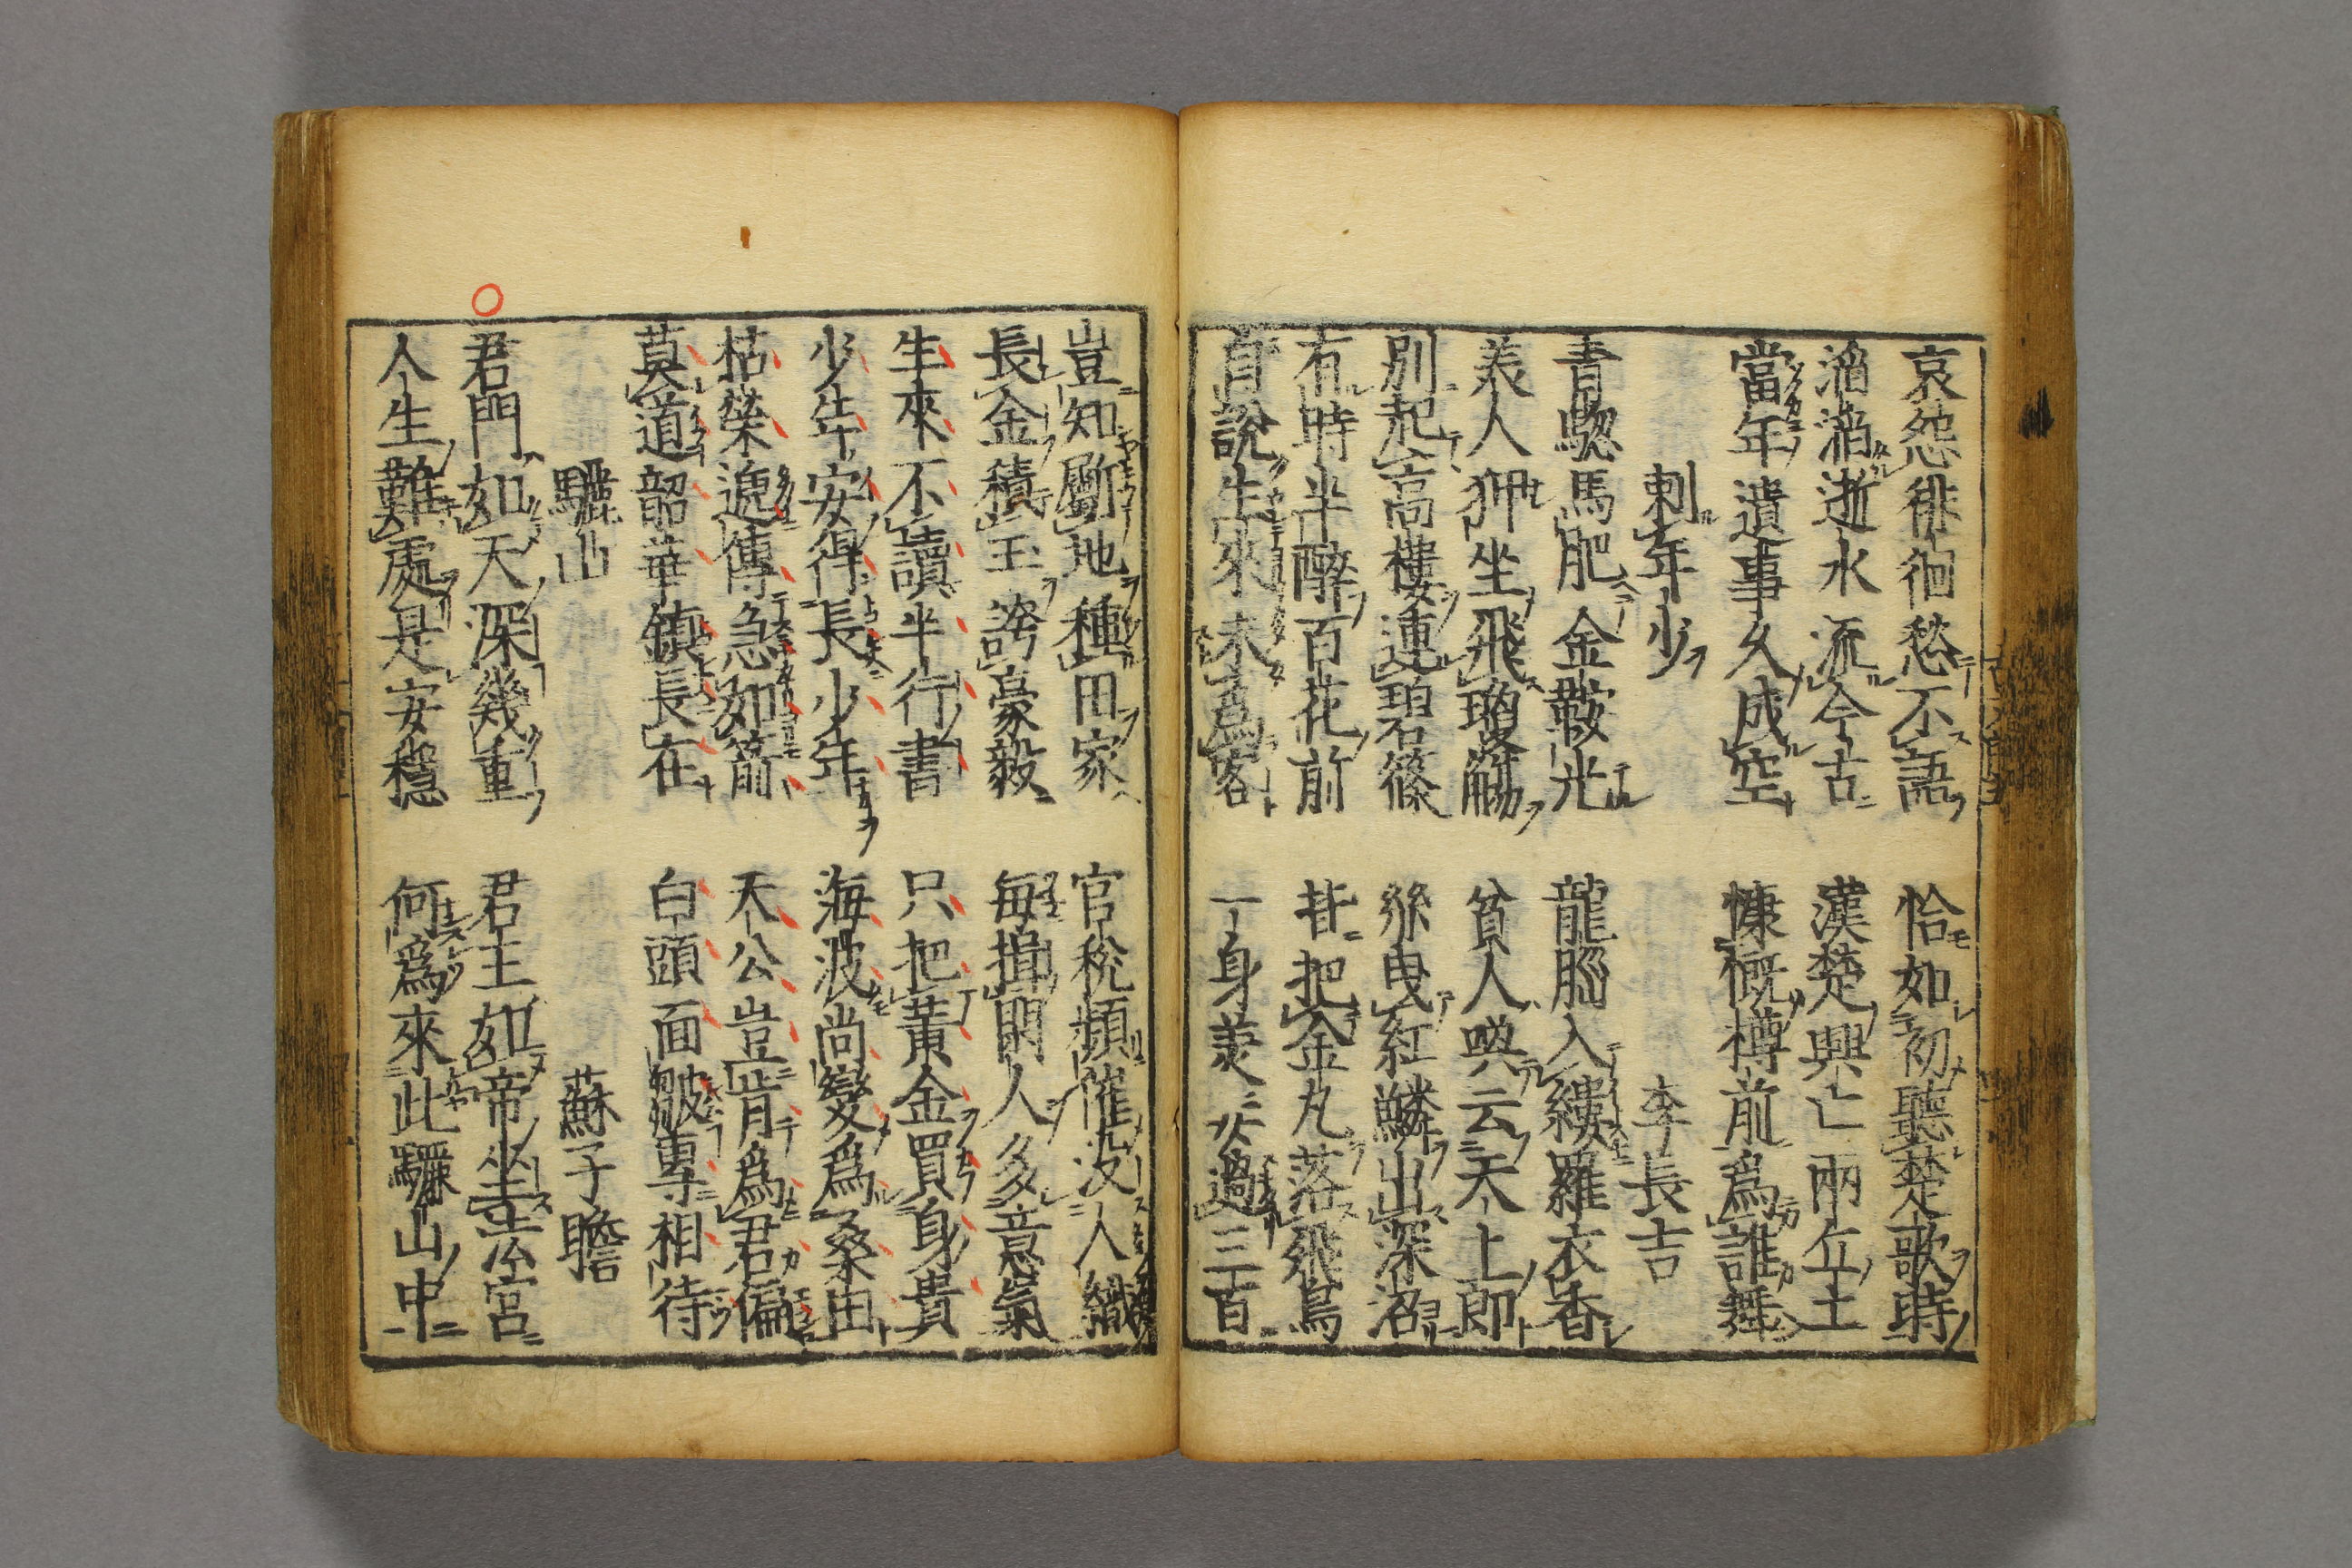 哀怨徘徊愁不語　恰如初聽楚歌時
滔滔逝水流今古　漢楚興亡兩丘土
當年遺事久成空　慷慨樽前為誰舞
刺年少　李長吉
青騘馬肥金鞍光　龍腦入縷羅衣香
美人狎坐飛瓊觴　貧人喚云天上郎
別起高樓連碧篠　絲曳紅鱗出深沼
有時半醉百花前　背把金丸落飛鳥
自說生來未爲客　一身美妾過三百
豈知斸地種田家　官稅頻催沒人織
長金積玉誇豪毅　每揖閑人多意氣
生來不讀半行書　只把黃金買身貴
少年安得長少年　海波尚變爲桑田
枯榮遞傳急如箭　天公豈肯爲君偏
莫道韶華鎮長在　白頭面皺專相待
驪山　蘇子瞻
君門如天深幾重　君王如帝坐法宮
人生難處是安穩　何爲來此驪山中